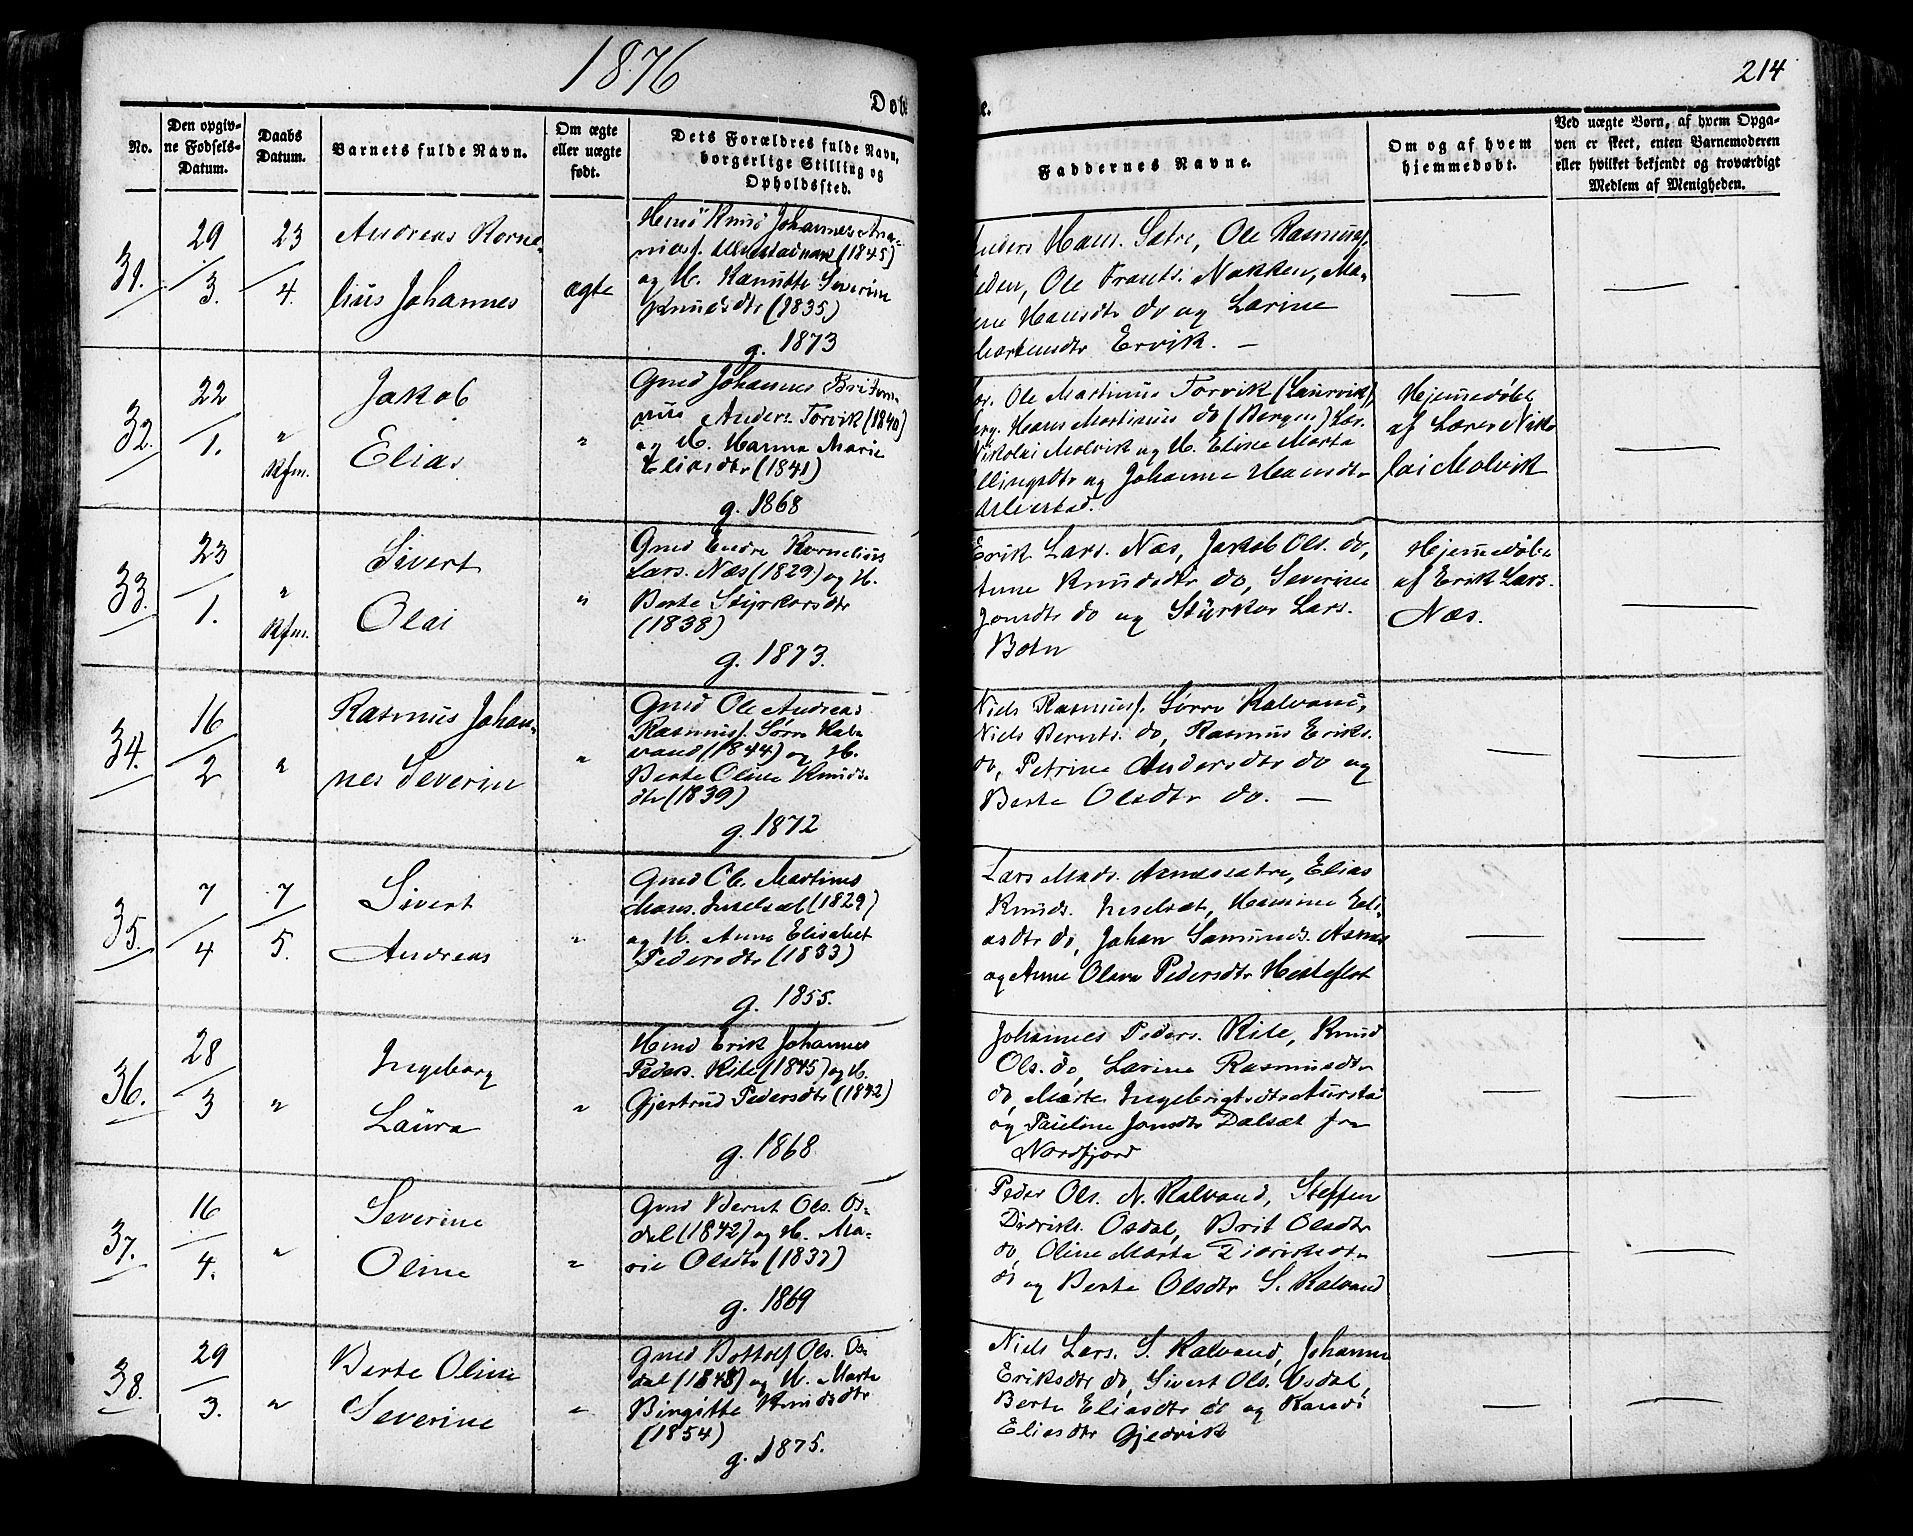 1876
214
Døbte.
No.
Den opgiv-
ne Fødsels-
Datum.
Daabs
Datum.
Barnets fulde Navn.
Om ægte
eller uægte
født.
Dets Forældres fulde Navn,
borgerlige Stilling og
Opholdssted.
Faddernes Navne.
Om og af hvem
hjemmedøbt.
Ved uægte Børn, af hvem Opga-
ven er skeet, enten Barnemoderen
eller hvilket bekjendt og troværdigt
Medlem af Menigheden.
31.
29/3.
23/4.
Andreas Korne-
lius Johannes
ægte
Hmd Knud Johannes Ana-
niasf. (1845)
og H. Kanutte Severine
Knudsdtr (1835)
g. 1873
Anders Hans. Sætre, Ole Rasmusf.
Eden, Ole Frants. Nakken, Ma-
Hansdtr do og Larine
Martensdtr Ervik. —
—
—
32.
22/1.
"
Kfm.
Jakob
Elias
"
Gmd Johannes
Anders. Torvik (1840)
og H. Hanna Marie
Eliasdtr (1841)
g. 1868
Ole Martinus Torvik (Laurvik),
Hans Martinus do (Bergen) Lær.
Nikolai Molvik og H. Elise Marta
Ellingsdtr og Johanne Hansdtr
Ulvestad.
Hjemmedøbt
af Lærer Niko-
lai Molvik
—
33.
23/1.
"
Kfm.
Sivert
Olai
"
Gmd Endre Kornelius
Lars. Næs (1829) og H.
Berte Styrkorsdtr
(1838)
g. 1873.
Erik Lars. Næs, Jakob Ols. do,
Anne Knudsdtr do, Severine
Jonsdtr do og Styrkor Lars.
Botn
Hjemmedøbt
af Erik Lars.
Næs.
—
34.
16/2
"
Rasmus Johan-
nes Severin
"
Gmd Ole Andreas
Rasmusf. Sørre Kal-
vand (1844) og H.
Berte Oline Knuds-
dtr (1839)
g. 1872
Niels Rasmusf. Sørre Kalvand,
Niels Bernts. do, Rasmus Eriks.
do, Petrine Andersdtr do og
Berte Olsdtr do. —
—
—
35.
7/4
7/5.
Sivert
Andreas
"
Gmd Ole Martinus
Mons. Inselsæt (1829)
og H. Anne Elisabet
Pedersdtr (1833)
g. 1855.
Lars Mads. Aasnæssætre, Elias
Knuds. Inselsæt, Hansine Eli-
asdtr do, Johan Samunds. Aasnæs
og Anne Olava Pedersdtr Hesteflot
—
—
36.
28/3
"
Ingeborg
Laura
"
Hmd Erik Johannes
Peders. Kile (1845) og H.
Gjertrud Pedersdtr (1842)
g. 1868
Johannes Peders. Kile, Knud
Ols. do, Larine Rasmusdtr
do, Marte Ingebrigtsdtr Aurstad
og Pauline Jonsdtr Dalsæt fra
Nordfjord
—
—
37.
16/4.
"
Severine
Oline
"
Gmd Bernt Ols. Os-
dal (1842) og H. Ma-
rie Olsdtr (1837)
g. 1869
Peder Ols. N. Kalvand, Steffen
Didriks. Osdal, Brit Olsdtr
do, Oline Marta Didriksdtr
do og Berte Olsdtr S. Kalvand
—
—
38.
29/3.
"
Berte Oline
Severine
"
Gmd Bottolf Ols. Os-
dal (1848) og H. Marte
Birgitte Knudsdtr
(1854)
g. 1875.
Niels Lars. S. Kalvand, Johanne
Eriksdtr do, Sivert Ols. Osdal,
Berte Eliasdtr do og Randi
Eliasdtr Gjedvik
—
—